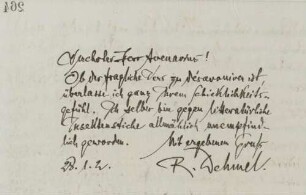 Herr Avenarius!
Ob der fragliche Vers zu desavouiren ist,
überlasse ich ganz Ihrem Schicklichkeits-
gefühl. Ich selber bin gegen litterärische
Insektenstiche allmählich unempfind-
lich geworden. Mit ergebenem Gruß
23.1.2. R. Dehmel.